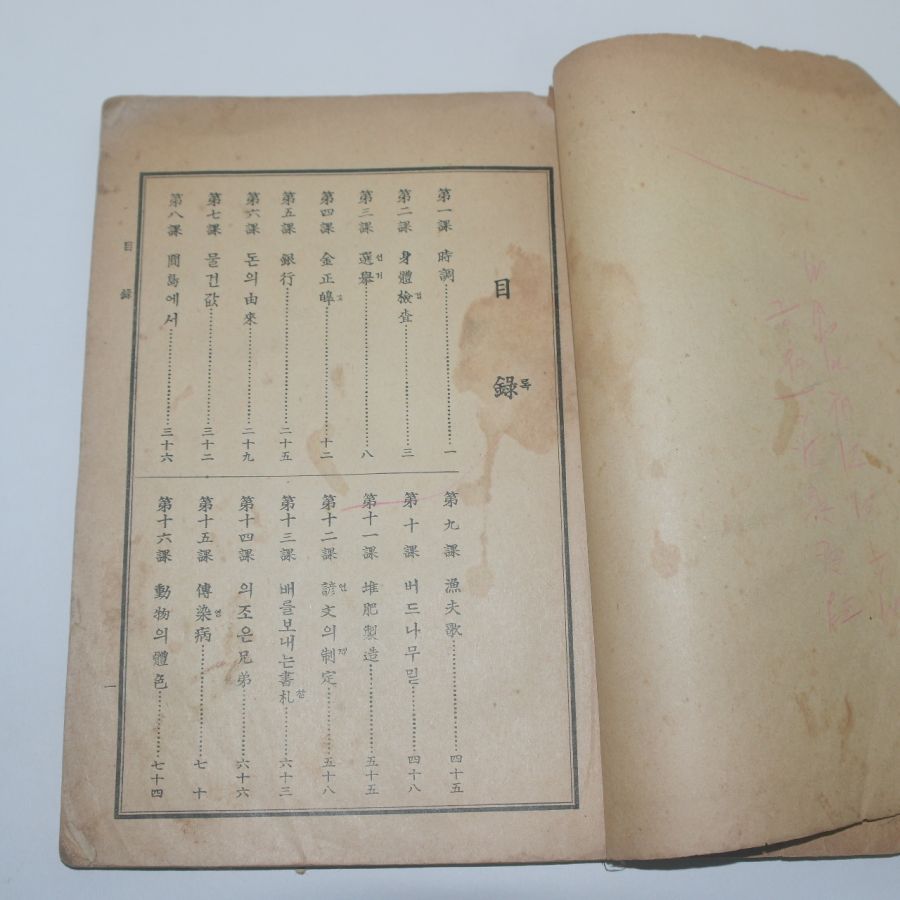 目錄록
第一課 時調 一
第二課 身體檢검査 三
第三課 選선擧거 八
第四課 金正皥호 十二
第五課 銀行 二十五
第六課 돈의由來 二十九
第七課 물건값 三十二
第八課 間島에서 三十六
第九課 漁夫歌 四十五
第十課 버드나무밑 四十八
第十一課 堆肥製造 五十五
第十二課 諺언文의制제定 五十八
第十三課 배를보내는書札찰 六十三
第十四課 의조은兄弟 六十六
第十五課 傳染염病 七十
第十六課 動物의體色 七十四
目錄
一